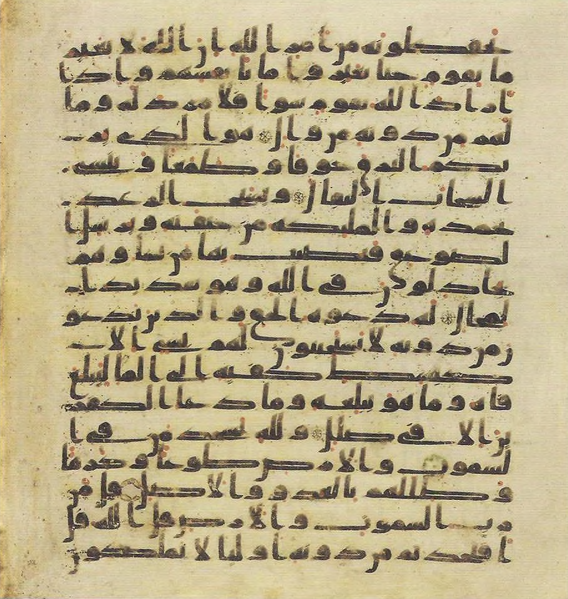 يحفظونه من امر الله ان الله لا يغير
ما بقوم حتى يغيروا ما بانفسهم واذا
اراد الله بقوم سوا فلا مرد له وما
لهم من دونه من وال هو الذي ير
يكم البرق خوفا وطمعا وينشى
السحاب الثقال ويسبح الرعد بـ
حمده والمليكه من خيفته ويرسل ا
لصوعق فيصيب بها من يشا وهم
يجدلون في الله وهو شديد ا
لمحال له دعوه الحق والذين يدعو
ن من دونه لا يستجيبون لهم بشى الا
كبسط كفيه الى الما ليبلغ
فاه وما هو ببلغه وما دعا الكفر
ين الا في ضلل ولله يسجد من في ا
لسموت والارض طوعا وكرها
وظللهم بالغدو والاصل قل من
رب السموت والارض قل الله قل
افاتخذتم من دونه اوليا لا يملكون